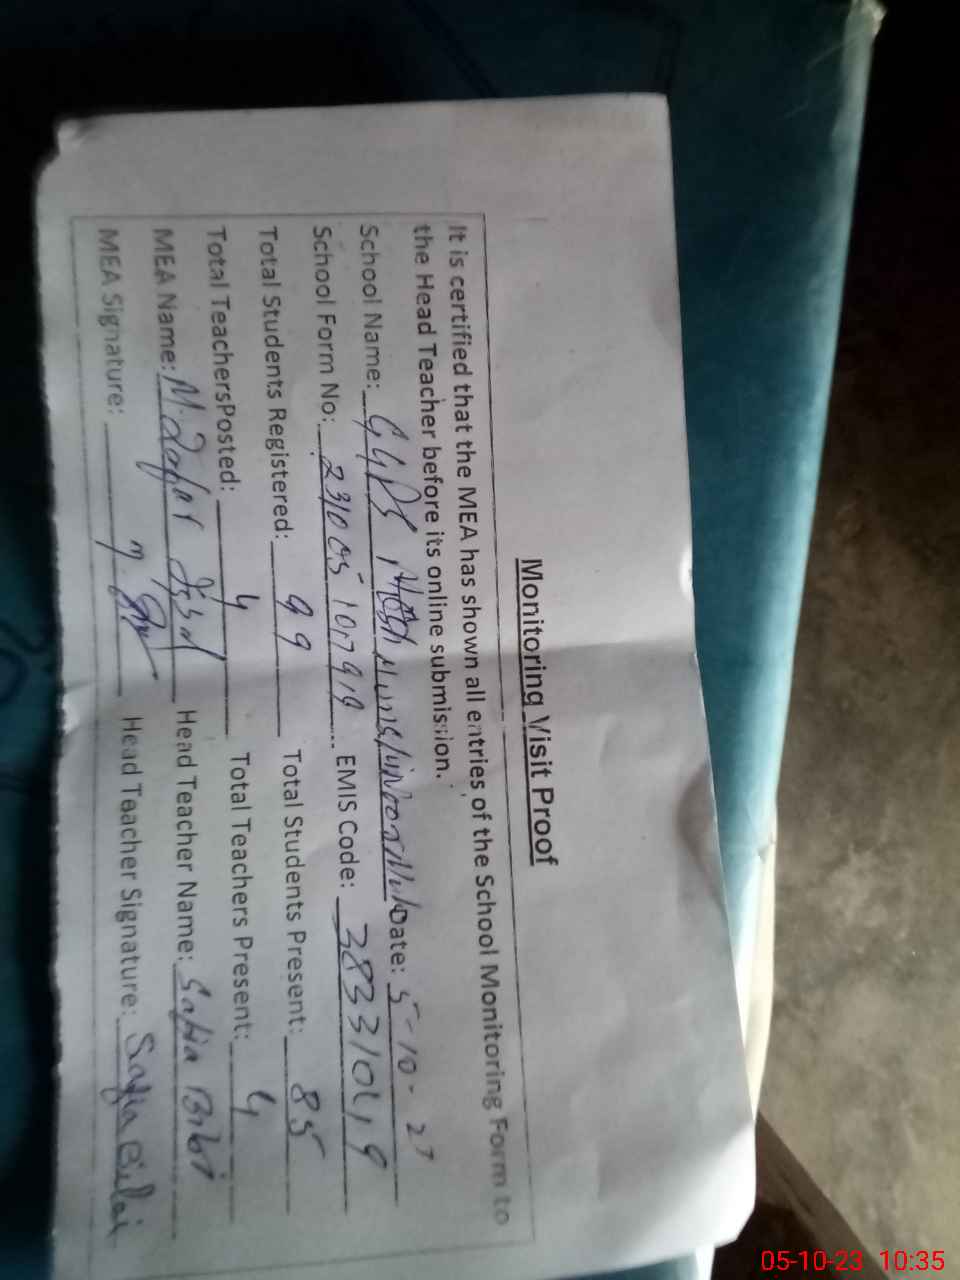 Monitoring Visit Proof
It is certified that the MEA has shown all entries of the School Monitoring Form to
the Head Teacher before its online submission.
School Name: GGPS Date: 5-10-23
School Form No: EMIS Code:
Total Students Registered: 99 Total Students Present: 85
Total TeachersPosted: 4 Total Teachers Present: 4
MEA Name: M. Zafar Head Teacher Name: Safia Bibi
MEA Signature: Head Teacher Signature: Safia
05-10-23 10:35